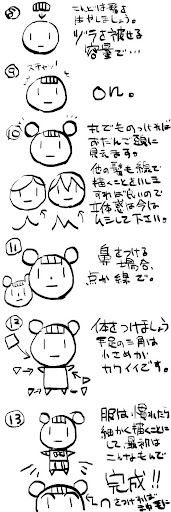 ⑧ こんどは髪を
生やしましょう。
ヅラを被せる
容量で…
⑨ スチャッ
on。
⑩ 丸でものっければ
おだんご頭に
見えます。
他の髪も線で
描くことにしま
すれば良いので
立体感は今は
ムシして下さい。
⑪ 鼻をつける
場合、
点か線で。
⑫ 体をつけましょう
手足の三角は
小さめが
カワイイです。
⑬ 服は慣れたり
細かく描くことに
して、最初は
こんなもんで
完成!!
をつければ